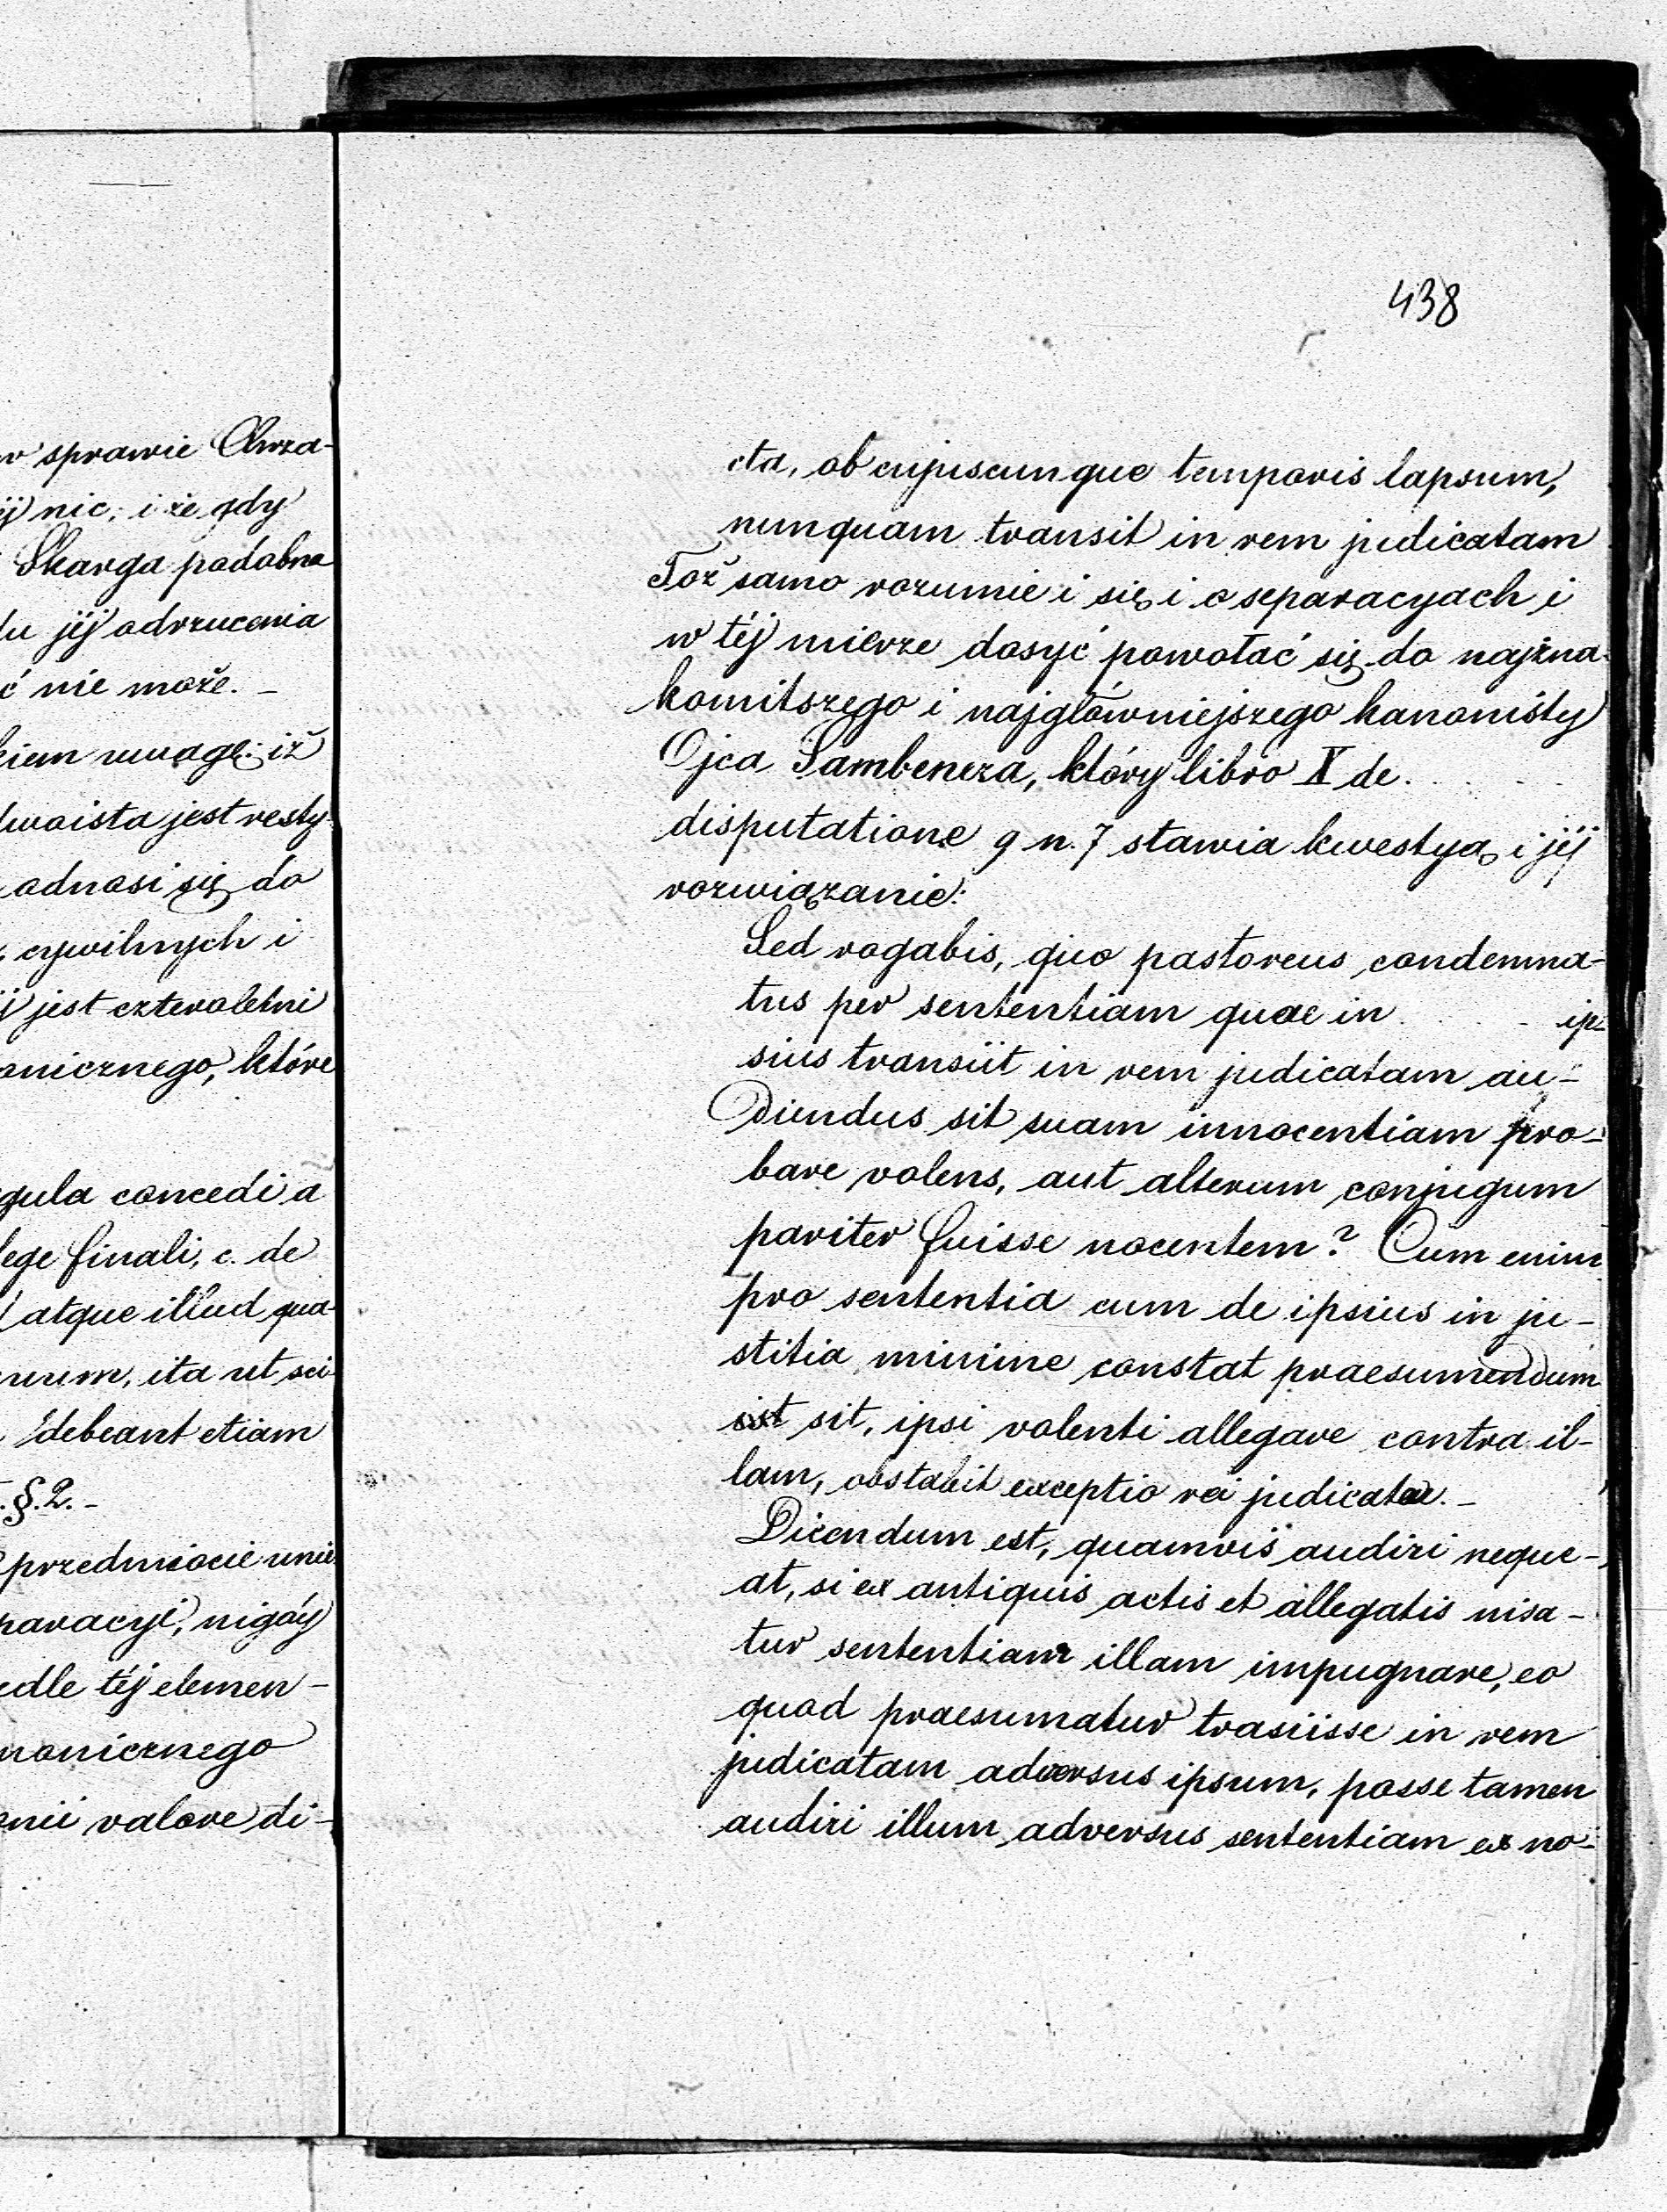 w sprawie Chrza-
ej nic, i że gdy
Skarga podobna
du jéj odrzucenia
ć nie może. -
kiem uwagę: iż
dwoista jest resty-
odnosi się do
cywilnych i
jest czteroletni
anicznego, które
gula concedi a
lege finali, c. de
atque illud qua-
rum, ita ut sci-
debeant etiam
. §. 2. -
przedmiocie unie-
paracyi, nigdy
edle téj elemen-
nonicznego
onii valore di-
438
cta, ob cujuscunque temporis lapsum,
nunquam transit in rem judicatam
Toż samo rozumie i się i o separacyach i
w téj mierze dosyć powołać się do najzna-
komitszego i najgłówniejszego kanonisty
Ojca Sambenera, który libro X de . . . .
disputatione 9 n. 7 stawia kwestyą i jéj
rozwiązanie:
Sed rogabis, quo pastoreus condemna-
tus per sententiam quae in . . . . ip-
sius transiit in rem judicatam au-
diendus sit suam innocentiam pro-
bare volens, aut alterum conjugum
pariter fuisse nocentem? Cum enim
pro sententia cum de ipsius in ju-
stitia minime constat praesumendum
sit, ipsi volenti allegare contra il-
lam, obstabit exceptio rei judicatae. -
Dicendum est, quamvis audiri neque-
at, si ex antiquis actis et allegatis nisa-
tur sententiam illam impugnare, eo
quod praesumatur trasiisse in rem
judicatam adversus ipsum, posse tamen
audiri illum adversus sententiam ex no-